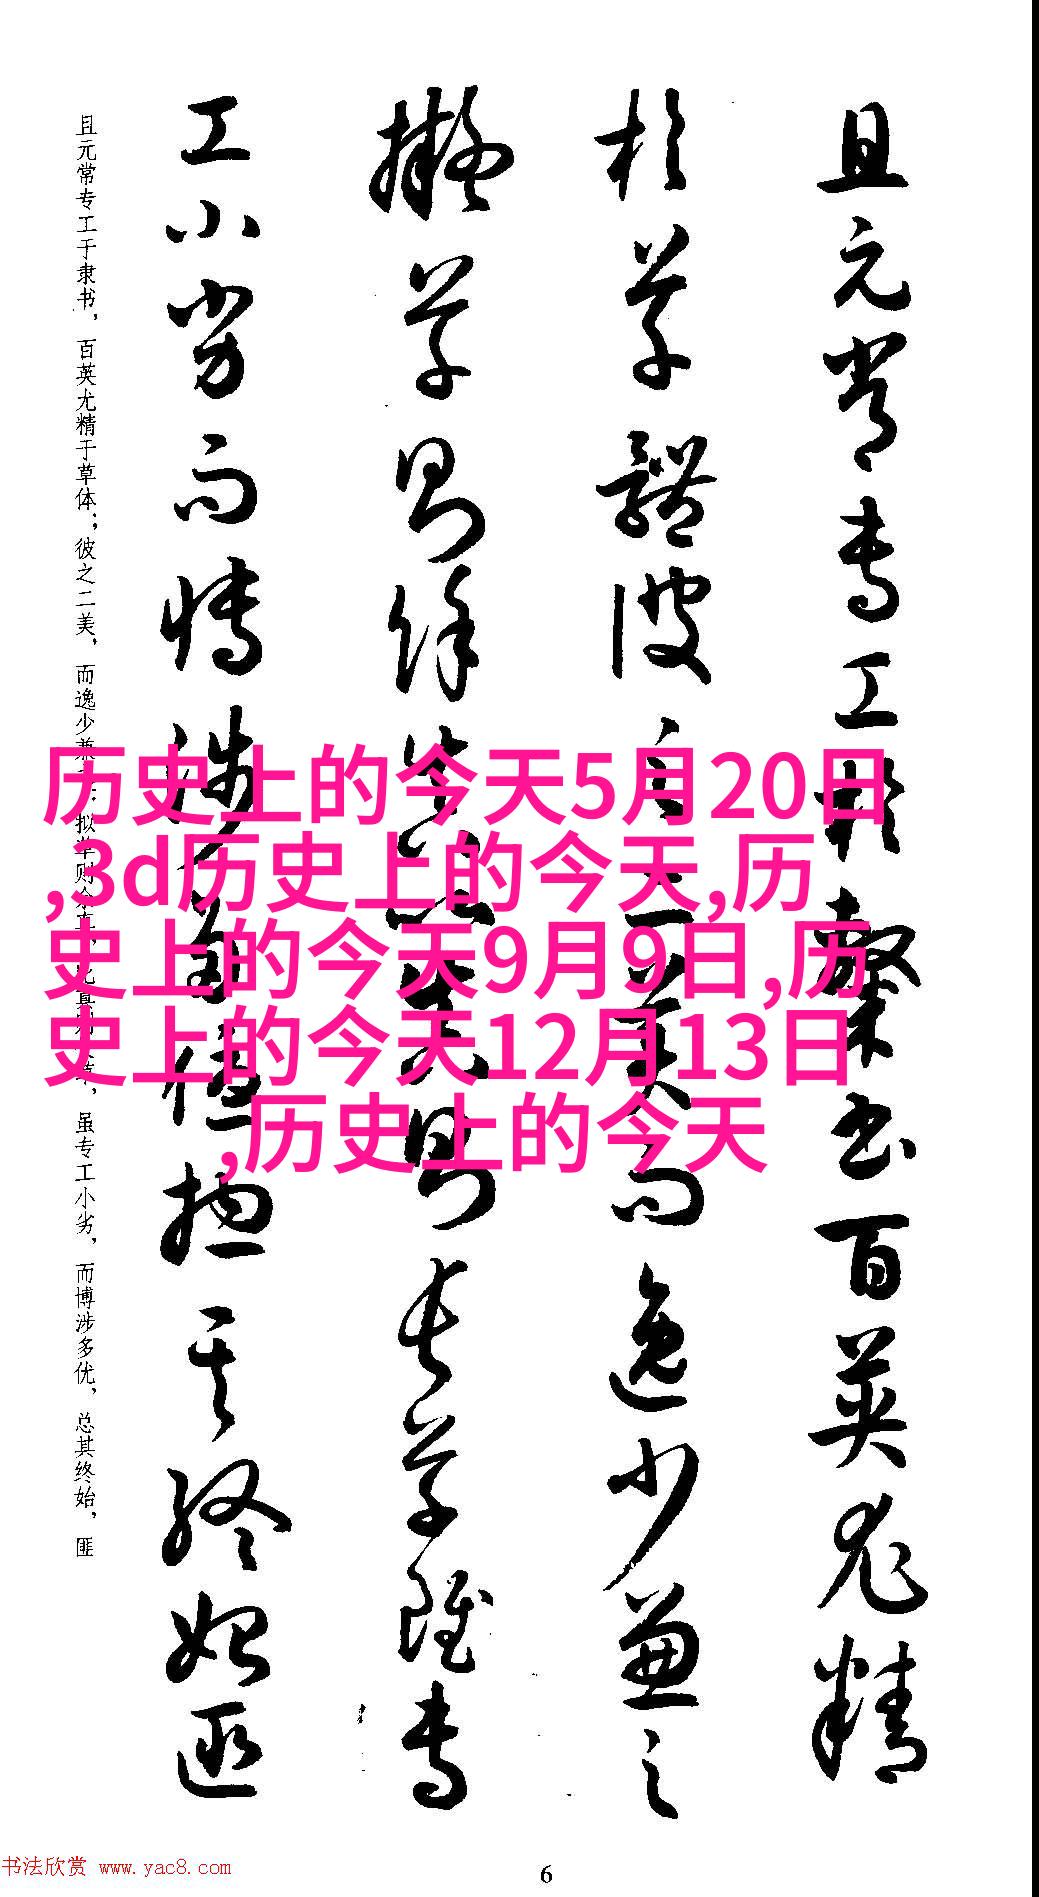 且元常专工于隶书，百英尤精于草体；彼之二美，而逸少兼
拟草则余真，比真则长草，虽专工小劣，而博涉多优，总其终始，匪
工小劣而博涉多优总其终始匪
拟草则余真比真则长草虽专
于草体彼之二美而逸少兼之
且元常专工于隶书百英尤精
历史上的今天5月20日
,3d历史上的今天,历
史上的今天9月9日,历
史上的今天12月13日
,历史上的今天
书法欣赏 www.yac8.com
6